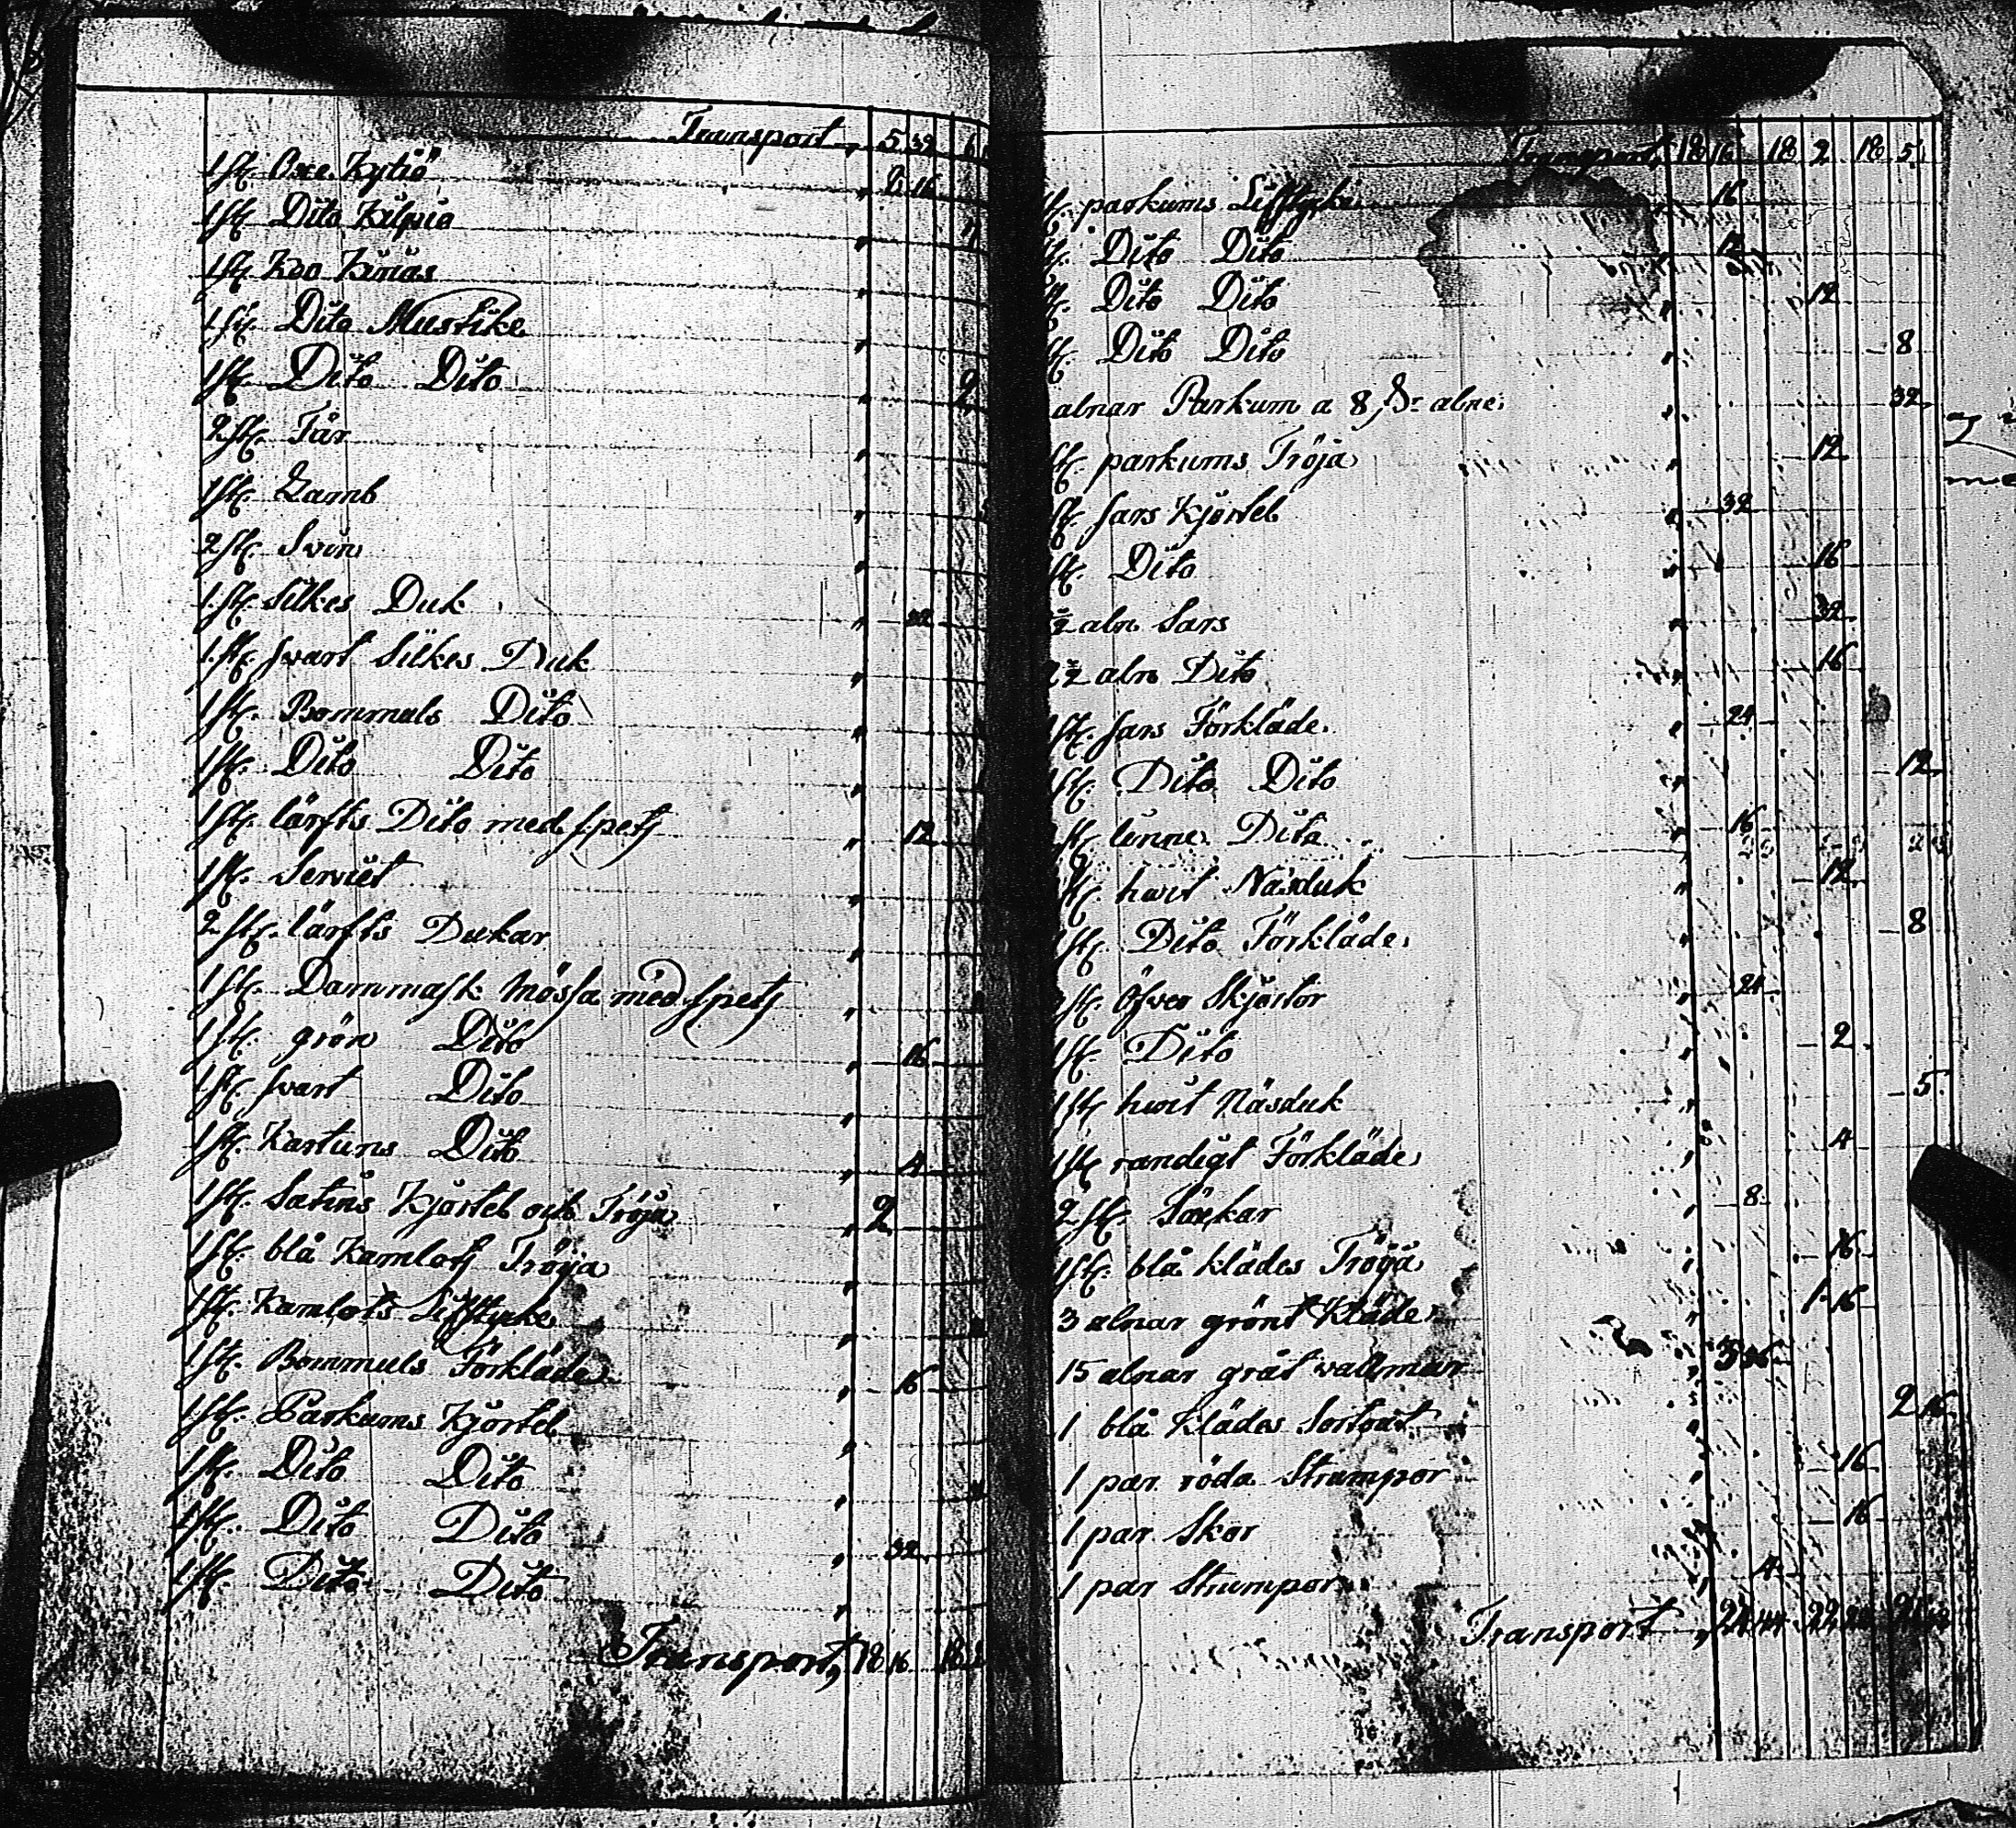 Transport " 5 32 6
1 st. Oxe Kytiö " 6 16
1 st. Dito Kilpio "
1 st. Koo Kinas "
1 st. Dito Mustike "
1 st. Dito Dito " 2
2 st. Får "
1 st. Lamb "
2 st. Svin "
1 st. Silkes Duk " 32
1 st. svart Silkes Duk "
1 st. Bommuls Dito "
1 st. Dito Dito "
1 st. lärfts Dito med spets " 12
1 st. Serviet "
2 st. lärfts Dukar "
1 st. Dammask Mössa med spets "
1 st. grön Dito " 16
1 st. svart Dito "
1 st. Kartuns Dito " 4
1 st. Satins Kjortel och Tröja " 2
1 st. blå Kamlots Tröja "
1 st. Kamlots Lifstycke "
1 st. Bommuls Förkläde " 16
1 st. Parkums Kjortel "
1 st. Dito Dito "
1 st. Dito Dito " 32
1 st. Dito Dito "
Transport " 18 16 18
Transport 18 16 18 2 18 5
st. parkums Lifstycke " 16
st. Dito Dito " 12
st. Dito Dito " 12
st. Dito Dito " 8
alnar Parkum a 8 s:r alne " 32
st. parkums Tröja " 12
st. sars Kjortel " 32
st. Dito " 16
aln Sars " 32
aln Dito " 16
1 st. sars Förkläde " 24
1 st. Dito Dito " 12
st. linne Dito " 16
st. hwit Näsduk " 12
1 st. Dito Förkläde " 8
st. Öfver Skjortor " 24
1 st. Dito " 2
1 st. hwit Näsduk " 5
1 st. randigt Förkläde " 4
2 st. Säckar " 8
1 st. blå klädes Tröja " 16
3 alnar grönt Kläde " 1 16
15 alnar gråt wallmar 3 36
1 blå Klädes Sortout 2 16
1 par röda Strumpor " 16
1 par Skor " 16
1 par Strumpor " 4
Transport " 24 44 22